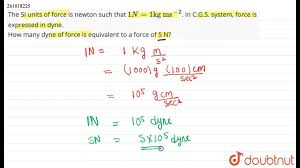 261018225
The SI units of force is newton such that 1N = 1kg ms⁻². In C.G.S. system, force is
expressed in dyne.
How many dyne of force is equivalent to a force of 5 N?
1N = 1 kg m/s²
= (1000) g (100) cm/sec²
= 10⁵ g cm/sec²
1N = 10⁵ dyne
5N = 5×10⁵ dyne
doubtnut